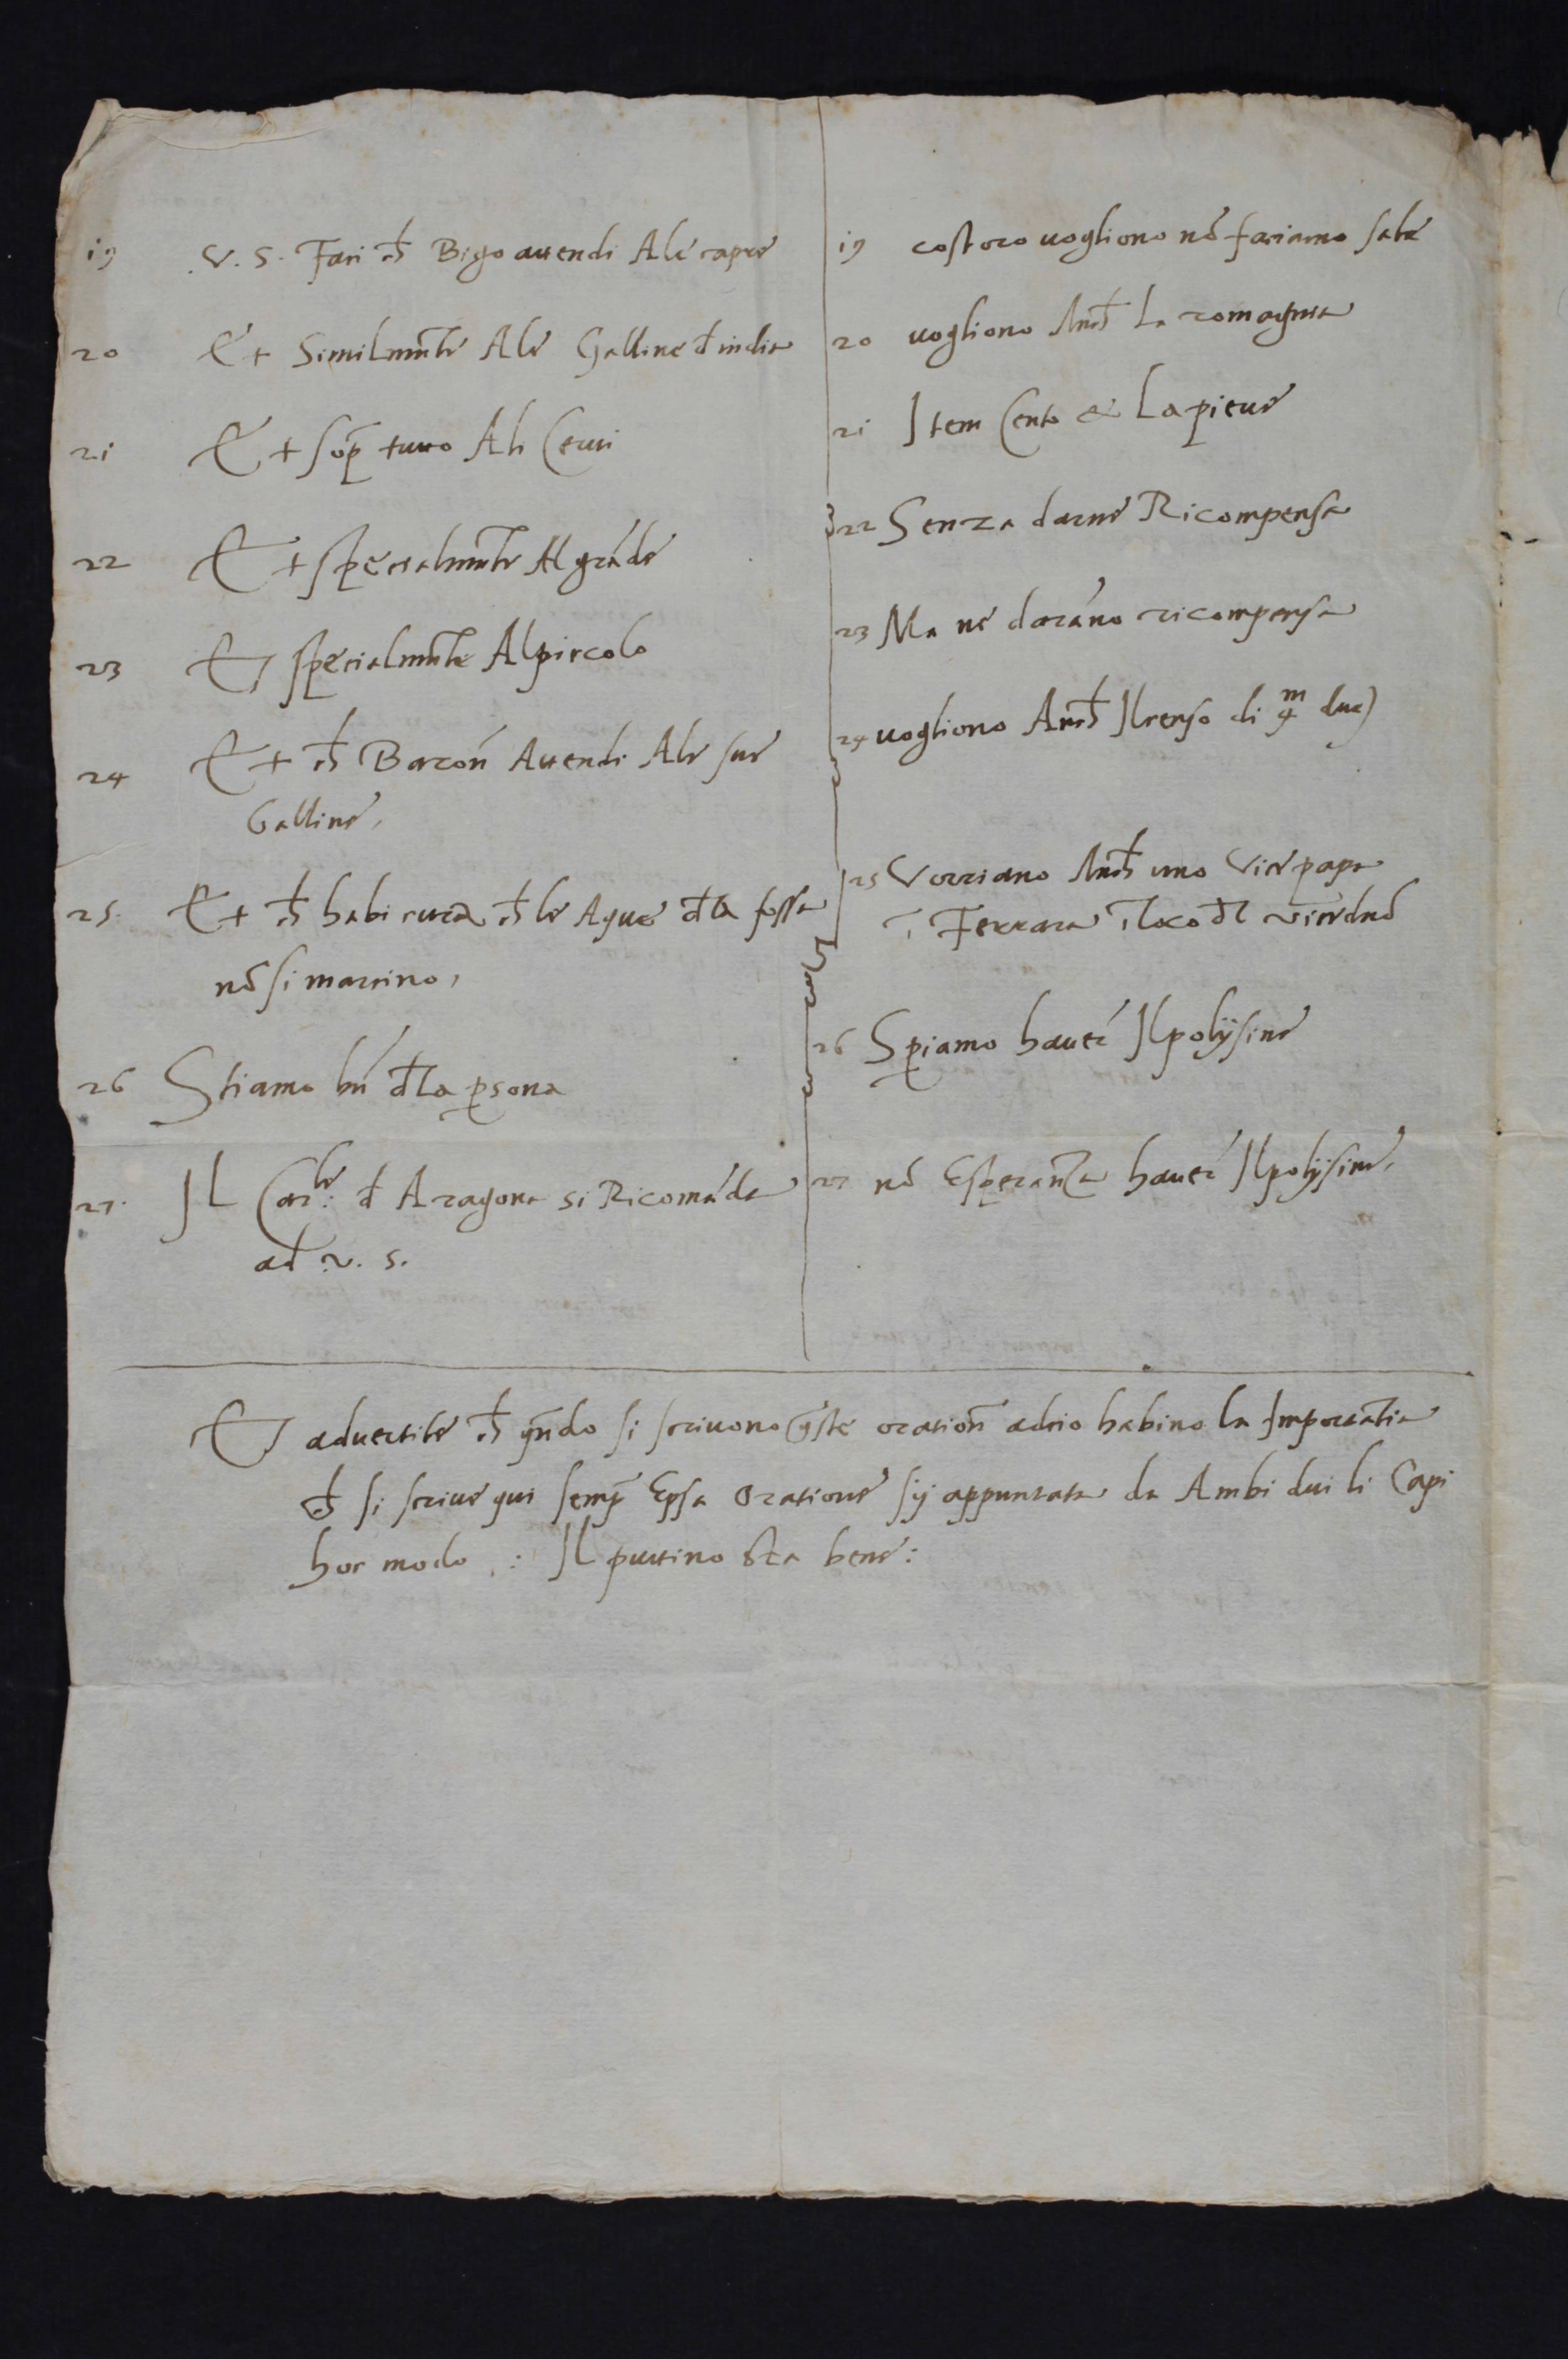 19 .V. S. Faci ch̄ Bigo attendi Ale capre
20 Et Similmnte Ale Galline d̄ india
21 Et sop̄ tutto Ali Cervi
22 Et specialmnte Al grāde
23 Et specialmnte Al piccolo
24 Et ch̄ Barcon̄ Attendi Ale sue
Galline,
25. Et ch̄ habi cura ch̄ le Aque d̄la fossa
nō si marcino,
26 Stiamo bn̄ d̄la p̱sona
27. Il Carle: d̄ Aragona si Ricomāda
ad v. s.
19 costoro vogliono nō faciamo sale
20 vogliono Anch̄ La romagna
21 Item Cento & La pieve
22 Senza darne Ricompensa
23 Ma ne darāno ricompensa
24 vogliono Anch̄ Il censo di 4m duc)
25 Vorriano Anch̄ uno Vice papa
ī Ferrara ī loco d̄l
26 Sp̱iamo haver̄ Il polysine
27 nō Esperanza haver̄ Il polysine,
Et advertite ch̄ qn̄do si scrivono q̄ste oration̄ acciò habino la Importātia
ch̄ si scrive qui semp̄ Epsa Oratione sij appuntata da Ambi dui li Capi
hoc modo .: Il puttino sta bene: